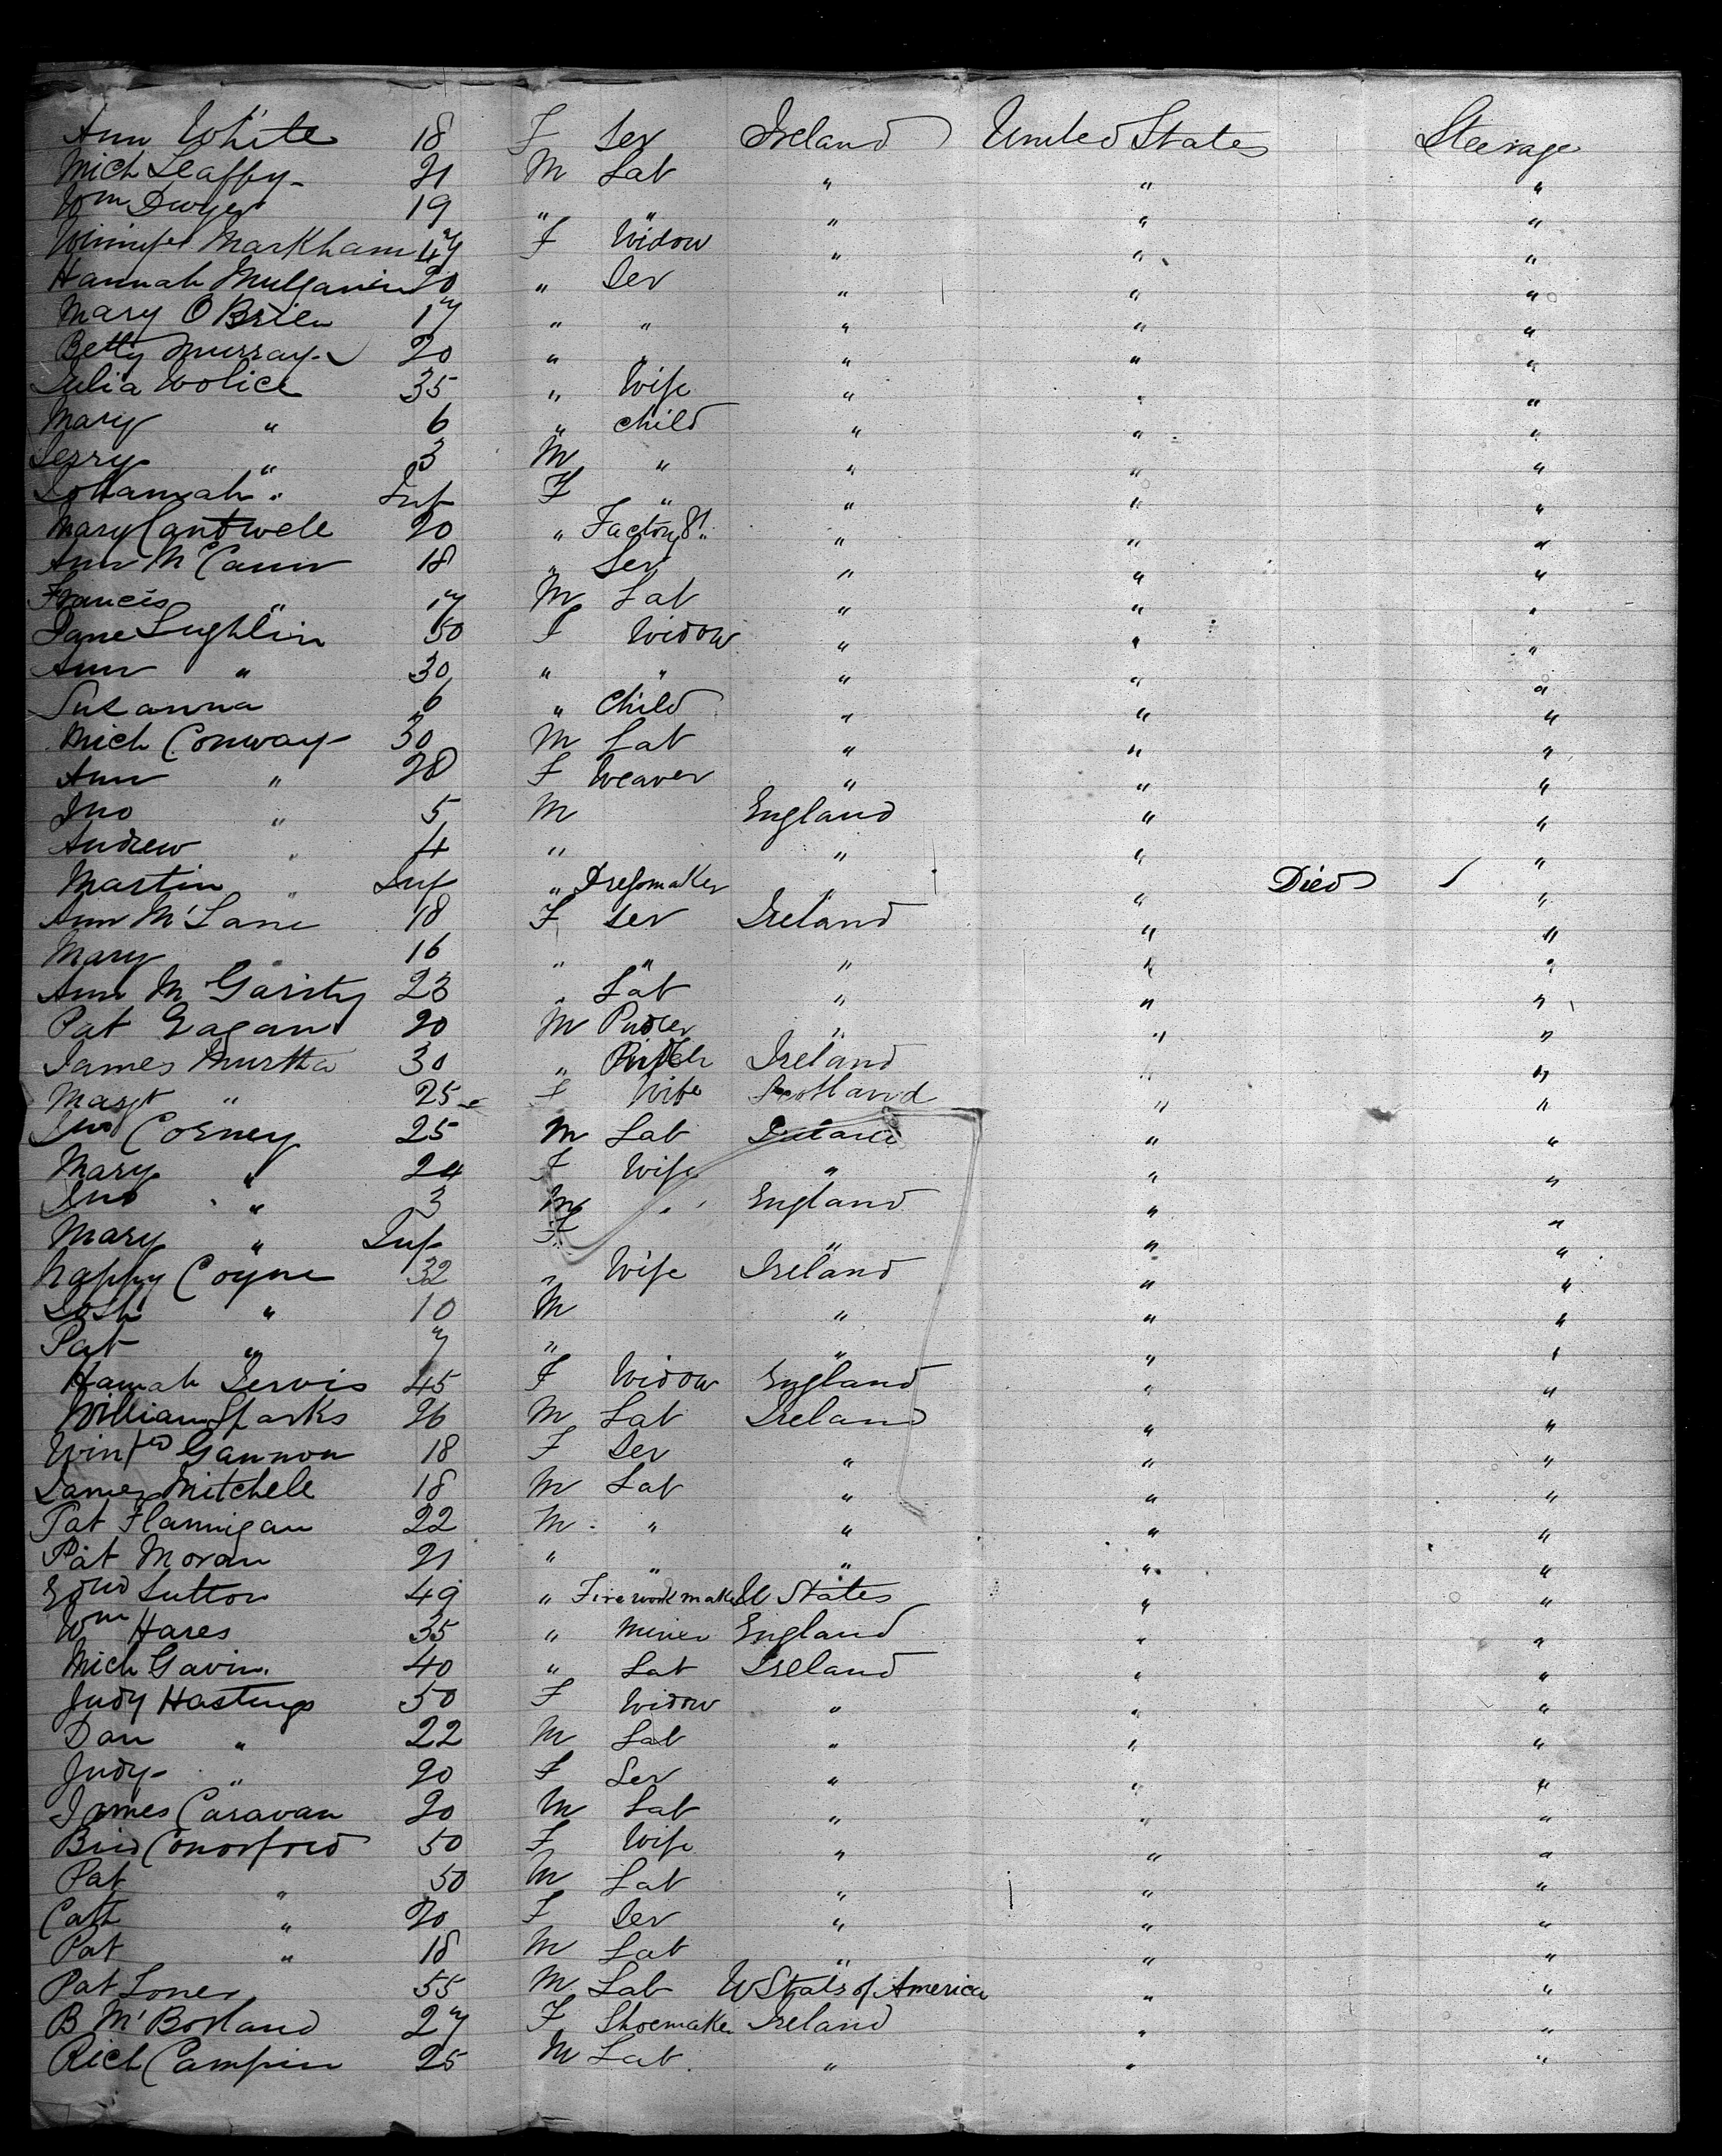 Ann White 18 F Ser Ireland United States Steerage
Mich Leaffy 21 M Lab " " "
Wm Dwyer 19 " " " " "
Winnifred Markham 47 F Widow " " "
Hannah Mulganin 20 " Ser " " "
Mary O Brien 17 " " " " "
Betty Murray 20 " " " " "
Julia Wolice 35 " Wife " " "
Mary " 6 " child " " "
Jerry " 3 M " " " "
Johannah " Inf F " " " "
Mary Cantwell 20 " Factory " " "
Ann McCann 18 " Ser " " "
Francis " 17 M Lab " " "
Jane Lughlin 50 F Widow " " "
Ann " 30 " " " " "
Susanna 6 " Child " " "
Mich Conway 30 M Lab " " "
Ann " 28 F Weaver " " "
Jno " 5 M England " "
Andrew " 4 " " " "
Martin " Inf " Dressmaker " " Died "
Ann M'Lane 18 F Ser Ireland " "
Mary 16 " " " " "
Ann M Garity 23 " Lab " " "
Pat Gagan 20 M " " "
James Murtha 30 " Ireland " "
Margt " 25 F Wife Scotland " "
Jno Corney 25 M Lab " "
Mary " 24 F Wife " " "
Jno " 3 M " England " "
Mary " Inf F " " "
Nappy Coyne 32 " Wife Ireland " "
Josh " 10 M " " "
Pat " 7 " " " "
Hannah Jervis 45 F Widow England " "
William Sparks 26 M Lab Ireland " "
Winfed Gannon 18 F Ser " " "
James Mitchell 18 M Lab " " "
Pat Flannigan 22 M " " " "
Pat Moran 21 " " " " "
Edwd Sutton 49 " Firework maker U States " "
Wm Hares 35 " Miner England " "
Mich Gavin 40 " Lab Ireland " "
Judy Hastings 50 F Widow " " "
Dan " 22 M Lab " " "
Judy " 20 F Ser " " "
James Caravan 20 M Lab " " "
Brid Conorford 50 F Wife " " "
Pat " 50 M Lab " " "
Cath " 20 F Ser " " "
Pat " 18 M Lab " " "
Pat Jones 55 M Lab U Stats of America " "
B M'Borland 27 F Shoemaker Ireland " "
Rich Campin 25 M Lab " " "